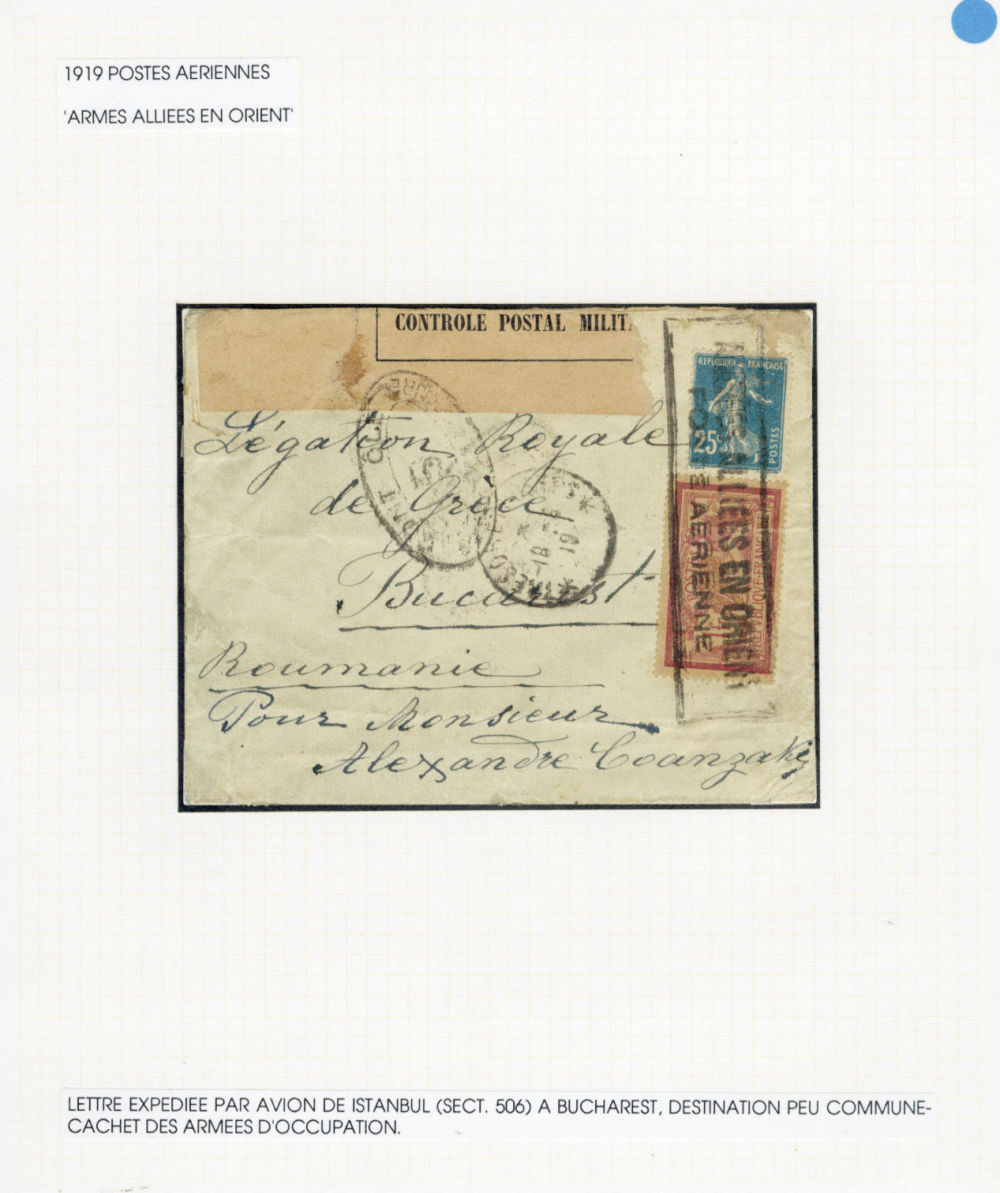 1919 POSTES AERIENNES
'ARMES ALLIEES EN ORIENT'
CONTROLE POSTAL MILIT.
REPUBLIQUE FRANÇAISE
25c
POSTES
ALLIÉES EN ORIENT
AERIENNE
Légation Royale
de Grèce
POSTES
18
19
Bucarest
Roumanie
Pour Monsieur
Alexandre Coanzaki
LETTRE EXPEDIEE PAR AVION DE ISTANBUL (SECT. 506) A BUCHAREST, DESTINATION PEU COMMUNE-
CACHET DES ARMEES D'OCCUPATION.